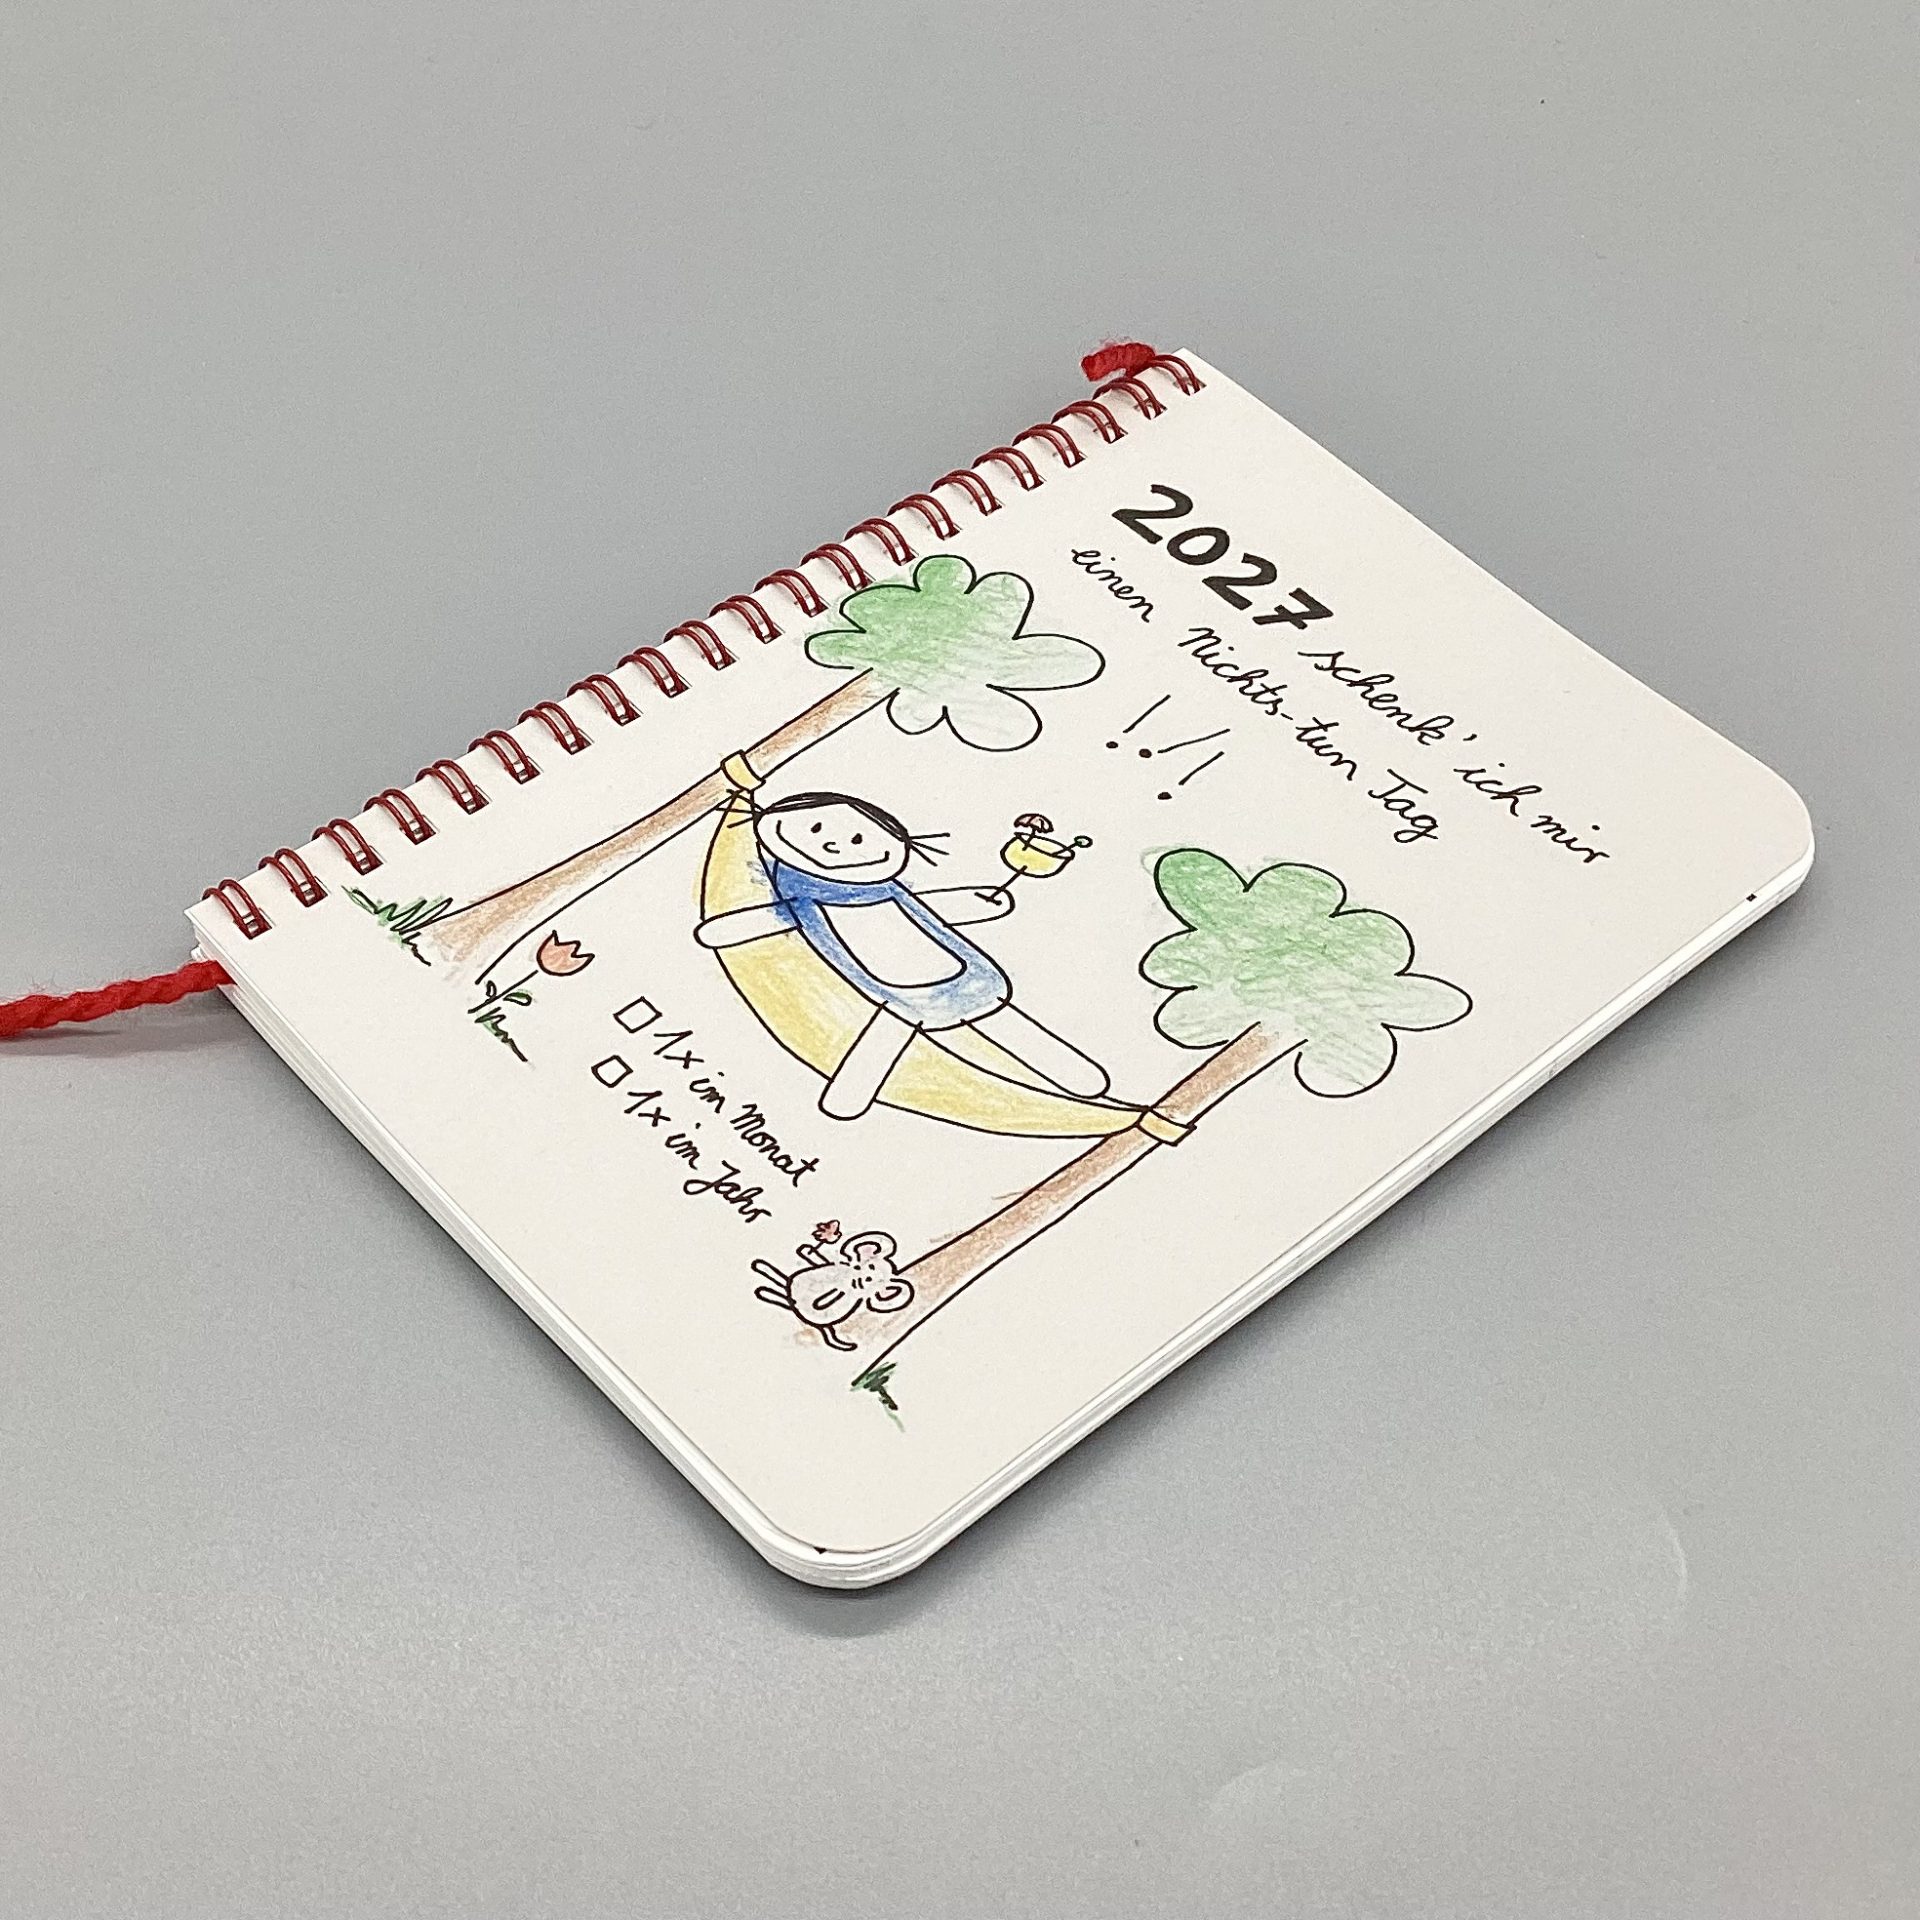 2027 schenk' ich mir
einen Nichts-tun Tag
!!!
1x im Monat
1x im Jahr